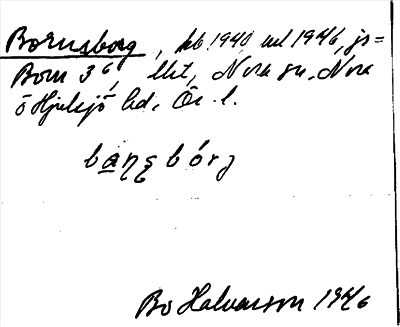 Bornsborg, kb 1940 ml 1946, js=
Born 3⁶, llt, Nora sn. Nora
o Hjulsjö bd. Ör. l.
baṇs̨bórj
Bo Halvarson 1946